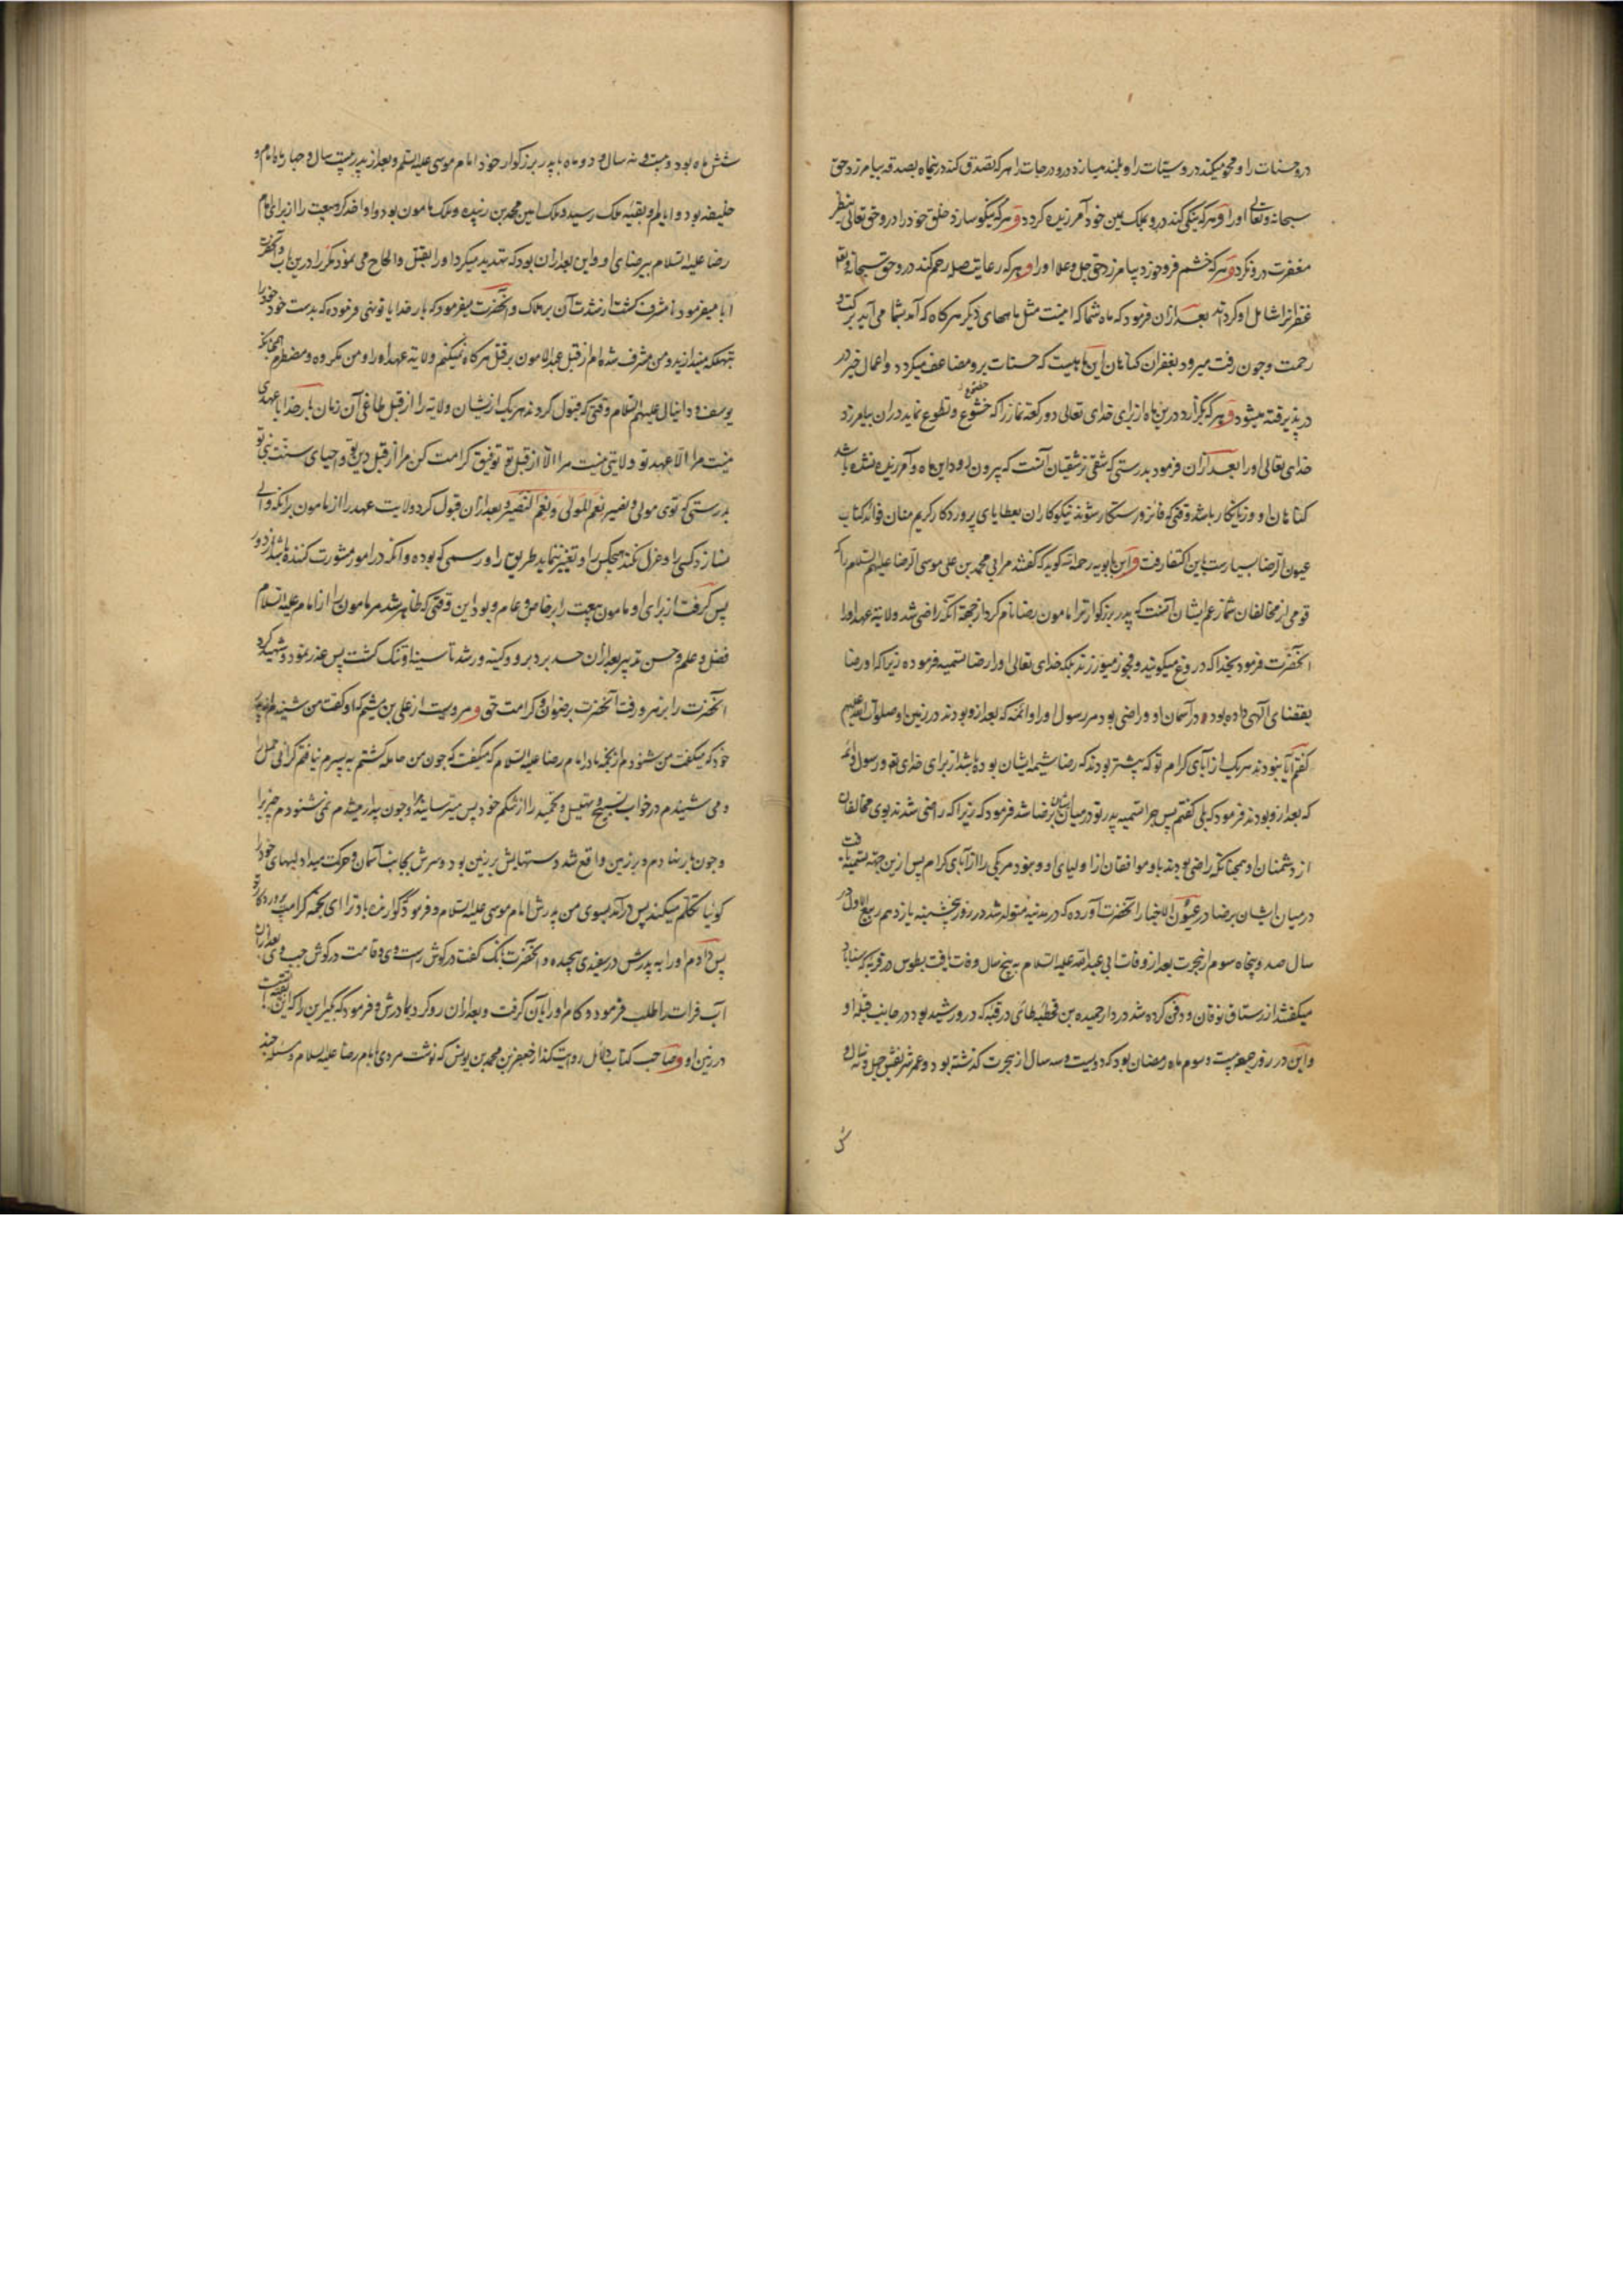 درو حسنات را و محو میکند درو سیئات را و بلند میسازد درو درجات را هر که تصدق کند درینماه بصدقه بیامرزد حق
سبحانه و تعالی اورا و هر که نیکی کند درو بملک یمین خود آمرزیده گردد و هر که نیکو سازد خلق خود را درو حق تعالی بنظر
مغفرت درو نگرد و هر که خشم فرو خورد بیامرزد حق جل و علا اورا و هر که رعایت صله رحم کند درو حق سبحانه و تعالی
غفرانرا شامل او گرداند بعد ازان فرمود که ماه شما که اینست مثل ماههای دیگر هرگاه که آمد بشما می آید ببرکت و
رحمت و چون رفت میرود بغفران گناهان این ماهیست که حسنات برو مضاعف میگردد و اعمال خیر در
در پذیرفته میشود و هر که بگزارد درین ماه از برای خدای تعالی دو رکعة نماز را که خشوع و تطوع نماید دران بیامرزد
خدای تعالی اورا بعد ازان فرمود بدرستی که شقی ترشقیان آنست که بیرون رود این ماه و آمرزیده نشده باشد
گناهان او و زیانکار باشد وقتی که فائز و رستگار شوند نیکوکاران بعطایای پروردگار کریم منان فوائد کتاب
عیون الرضا بسیارست باین اکتفا رفت و ابن بابویه رحمه الله گوید که گفتند مر ابی محمد بن علی موسی الرضا علیهم السلام را که
قومی از مخالفان شما زعم ایشان آنست که پدر بزرگوار ترا مامون رضا نام کرد از جهة آنکه راضی شد ولایة عهد اورا
آنحضرت فرمود بخدا که دروغ میگویند و فجور میورزند بلکه خدای تعالی اورا رضا تسمیه فرموده زیرا که او رضا
بقضای آلهی داده بود در آسمان او و راضی بود مر رسول اورا و ائمه که بعد ازو بودند در زمین او صلوات الله علیهم
گفتم آیا نبودند هریک از آبای کرام تو که پیشتر بودند که رضا شیمه ایشان بوده باشد از برای خدای تعا و رسول و ائمه
که بعد ازو بودند فرمود که بلی گفتم پس چرا تسمیه پدر تو در میان ایشان برضا شد فرمود که زیرا که راضی شدند بوی مخالفان
از دشمنان او همچنانکه راضی بودند باو موافقان از اولیای او و نبود مر یکی را از آبای کرام پس ازین جهة تسمیه یافت
در میان ایشان برضا در عیون الاخبار آنحضرت آورده که در مدینه متولد شد در روز پنجشنبه یازدهم ربیع الاول در
سال صد و پنجاه سوم از هجرت بعد از وفات ابی عبد الله علیه السلام به پنج سال وفات یافت بطوس در قریه که سناباد
میگفتند از رستاق نوقان و دفن کرده شد در دار حمیده بن قحطبه طائی در قبه که درو رشید بود در جانب قبله او
و این در روز جمعه بیست و سوم ماه رمضان بود که دویست و سه سال از هجرت گذشته بود و عمر شریفش چهل و نه سال و
ش
شش ماه بود و بیست و نه سال و دو ماه با پدر بزرگوار خود امام موسی علیه السلم و بعد از پدر بیست سال و چهار ماه امام و
خلیفه بود و ایام او بقیه ملک رسید و ملک امین محمد بن زبیده و ملک مامون بود و او اخذ کرد بیعت را از برای امام
رضا علیه السلام بیرضای او و این بعد ازان بود که تهدید میکرد اورا بقتل و الحاح می نمود مکررا درین باب و آنحضرت
ابا میفرمود تا مشرف گشت از شدت آن بر هلاک و آنحضرت میفرمود که بار خدایا تو نهی فرموده که بدست خود خود را
بتهلکه میندازید و من مشرف شده ام از قبل عبد الله مامون بر قتل هرگاه نمیکنم ولایة عهد اورا و من مکروه و مضطرم همچنانکه
یوسف و دانیال علیهم السلام وقتی که قبول کردند هریک ازیشان ولایة را از قبل طاغی آن زمان بار خدایا عهدی
نیست مرا الا عهد تو و ولایتی نیست مرا الا از قبل تو توفیق کرامت کن مرا از قبل دین تو و احیای سنت نبی تو
بدرستی که توی مولی و نصیر نعم المولی و نعم النصیر و بعد ازان قبول کرد ولایت عهد را از مامون بر آنکه والی
نسازد کسی را و عزل نکند هیچکس را و تغییر ننماید طریق را و رسمی که بوده و آنکه در امور مشورت کننده باشد از دور
پس گرفت از برای او مامون بیعت را بر خاص و عام و بود این وقتی که ظاهر شد مر مامون را از امام علیه السلام
فضل و علم و حسن تدبیر بعد ازان حسد برد برو و کینه ورشد تا سینه او تنگ گشت پس غدر نمود و شهید کرد
آنحضرت را بزهر و رفت آنحضرت برضوان و کرامت حق و مرویست از علی بن میثم که او گفت من شنیدم از پدر
خود که میگفت من شنودم از نجمه مادر امام رضا علیه السلام که میگفت که چون من حامله گشتم به پسرم نیافتم گرانی حمل
و می شنیدم در خواب تسبیح و تهلیل و تحمید را از شکم خود پس میترسانید مرا و چون بیدار میشدم نمی شنودم چیزیرا
و چون بار نهادم در بر زمین واقع شد دستهایش بر زمین بود و سرش بجانب آسمان و حرکت میداد لبهای خود را
گوئیا تکلم میکند پس درآمد بسوی من پدرش امام موسی علیه السلام و فرمود گوارنده باد ترا ای نجمه کرامت پروردگار تو
پس دادم اورا به پدرش در سفیدی پیچیده و آنحضرت بانگ گفت در گوش راست وی و قامت در گوش چپ وی بعد ازان
آب فرات را طلب فرمود و کام اورا بآن گرفت و بعد ازان رو کرد بمادرش و فرمود که بگیر این را که این بقیه است
در زمین او و صاحب کتاب دلائل روایت کند از جعفر بن محمد بن یونس که نوشت مردی بامام رضا علیه السلام و مسئله چند